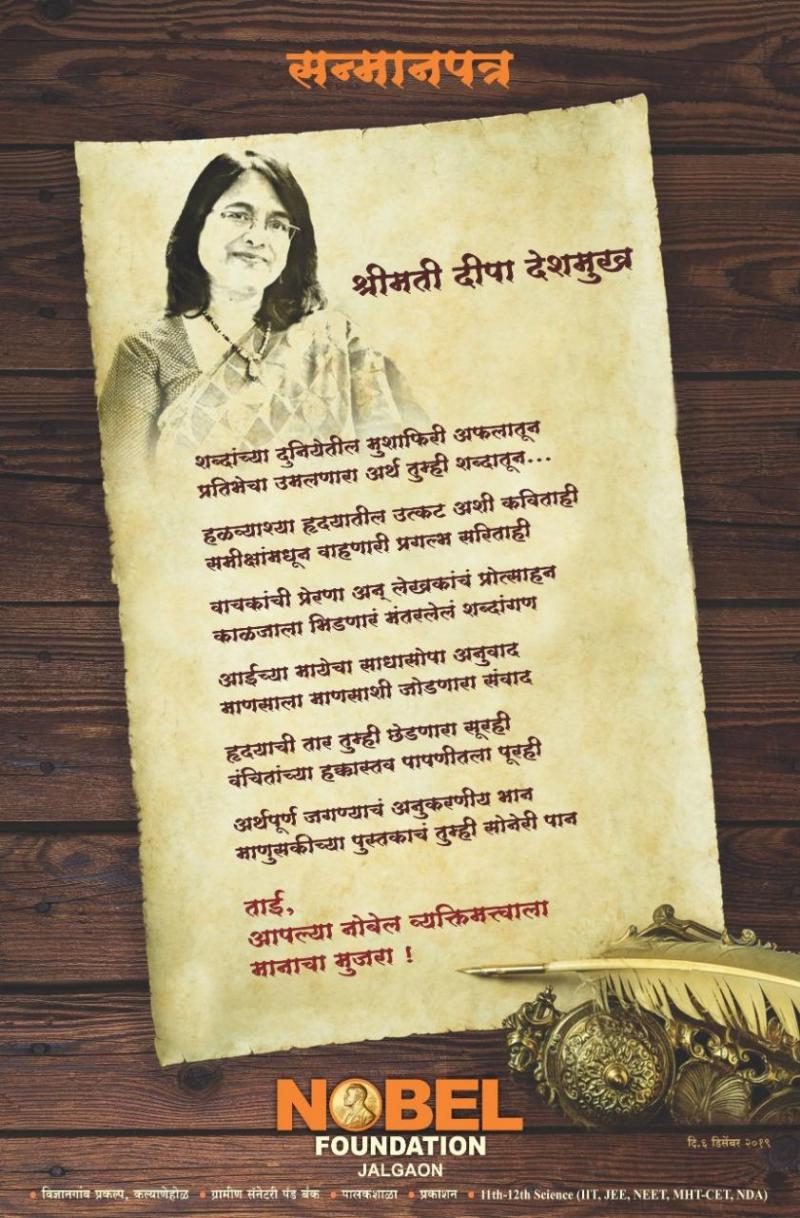 सन्मानपत्र
श्रीमती दीपा देशमुख
शब्दांच्या दुनियेतील मुशाफिरी अफलातून
प्रतिभेचा उमलणारा अर्थ तुम्ही शब्दातून...
हळव्याश्या हृदयातील उत्कट अशी कविताही
समीक्षांमधून वाहणारी प्रगल्भ सरिताही
वाचकांची प्रेरणा अन् लेखकांचं प्रोत्साहन
काळजाला भिडणारं मंतरलेलं शब्दांगण
आईच्या मायेचा साधासोपा अनुवाद
माणसाला माणसाशी जोडणारा संवाद
हृदयाची तार तुम्ही छेडणारा सूरही
वंचितांच्या हक्कास्तव पापणीतला पूरही
अर्थपूर्ण जगण्याचं अनुकरणीय भान
माणुसकीच्या पुस्तकाचं तुम्ही सोनेरी पान
ताई,
आपल्या नोबेल व्यक्तिमत्त्वाला
मानाचा मुजरा !
NOBEL
FOUNDATION
JALGAON
दि.६ डिसेंबर २०१९
• विज्ञानगांव प्रकल्प, कल्याणेहोळ • ग्रामीण सॅनेटरी पॅड बँक • पालकशाळा • प्रकाशन • 11th-12th Science (IIT, JEE, NEET, MHT-CET, NDA)